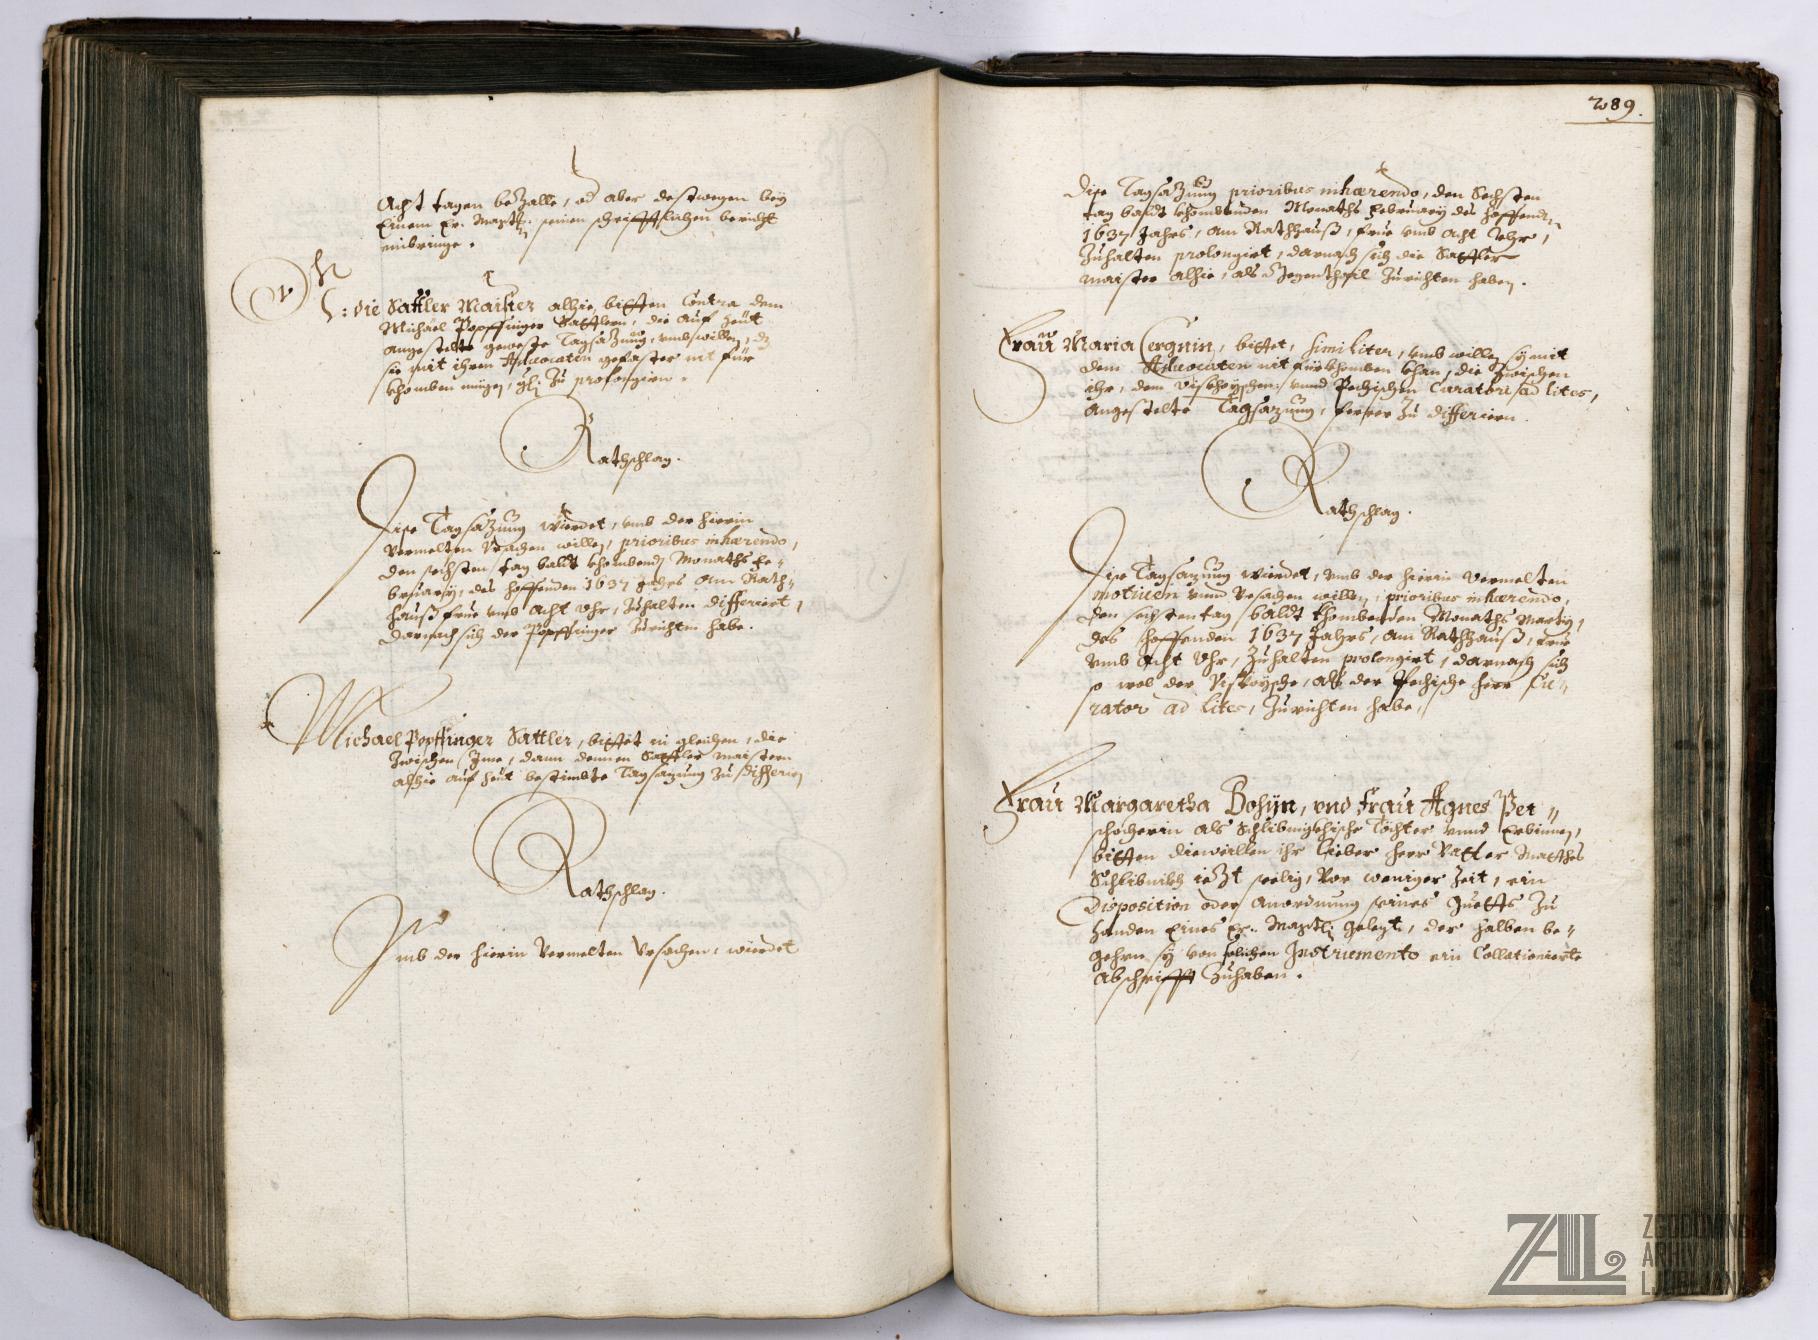 Acht tagen bezalle, od aber destwegen bey
Einem Er. Magtt: seinen schrifftlichen bericht
einbringe.
N: die Sattler Maister alhie, bitten Contra dem
Michäel Popffinger Sattlern, die auf heüt
angestelte geweste Tagsazung, umb willen, dz
sie mit ihren Aduocaten gefaster nit für
khomben mügen, zu prolongiern.
Rathschlag.
Dise Tagsazung würdet, umb der hierin
vermelten Vrsachen willen, prioribus inhærendo,
den sechsten tag baldt khombenden Monaths Fe-
bruarÿ, des hoffenden 1637 Jahrs am Rath-
hauß frue umb acht Uhr, zuhalten differiert,
darnach sich der Popffinger zurichten habe.
Michael Popffinger Sattler, bittet in gleichen, die
zwischen Ime, dann denen Sattler maistern
alhie auf heut bestimbte Tagsazung zu differiern
Rathschlag.
Vmb der hierin vermelten Vrsachen, würdet
289.
dise Tagsazung prioribus inhærendo, den Sechsten
tag baldt khombenden Monaths Februarÿ des hoffenden
1637 Jahrs, am Rathhauß, frue umb acht Uhr,
zuhalten prolongirt, darnach sich die Sattler
maister alhie, als Gegenthail zurichten haben.
Fraü Maria Cergnin, bittet, similiter, umb willen sÿ mit
dem Aduocaten nit fürkhomben khan, die zwischen
ihr, dem vnnd Pechischen Curatori ad lites,
angestelte Tagsazung, ferrer zu differiern.
Rathschlag.
Dise Tagsazung würdet, umb der hierin vermelten
motiuen vnnd Vrsachen willen, prioribus inhærendo,
den sechsten tag baldt khombenden Monaths Martÿ,
des hoffenden 1637 Jahrs, am Rathhauß, frue
umb acht Uhr, zuhalten prolongirt, darnach sich
so wol der als der Pechische herr Cu-
rator ad lites, zurichten habe.
Frau Margaretha Bohÿn, vnd Frau Agnes Pet-
schacherin als Schlibnigkhische Töchter vnnd Erbinnen,
bitten dieweillen ihr lieber herr Vatter Matthes
Schlibnikh iezt seelig, vor weniger Zeit, ein
Disposition oder anordnung seines zu
handen Eines Er. Magtt: gelegt, derhalben be-
gehrn sÿ von solichen Instrumento ein Collationierte
abschrifft zuhaben.
ZAL
ZGODOVINSKI
ARHIV
LJUBLJANA